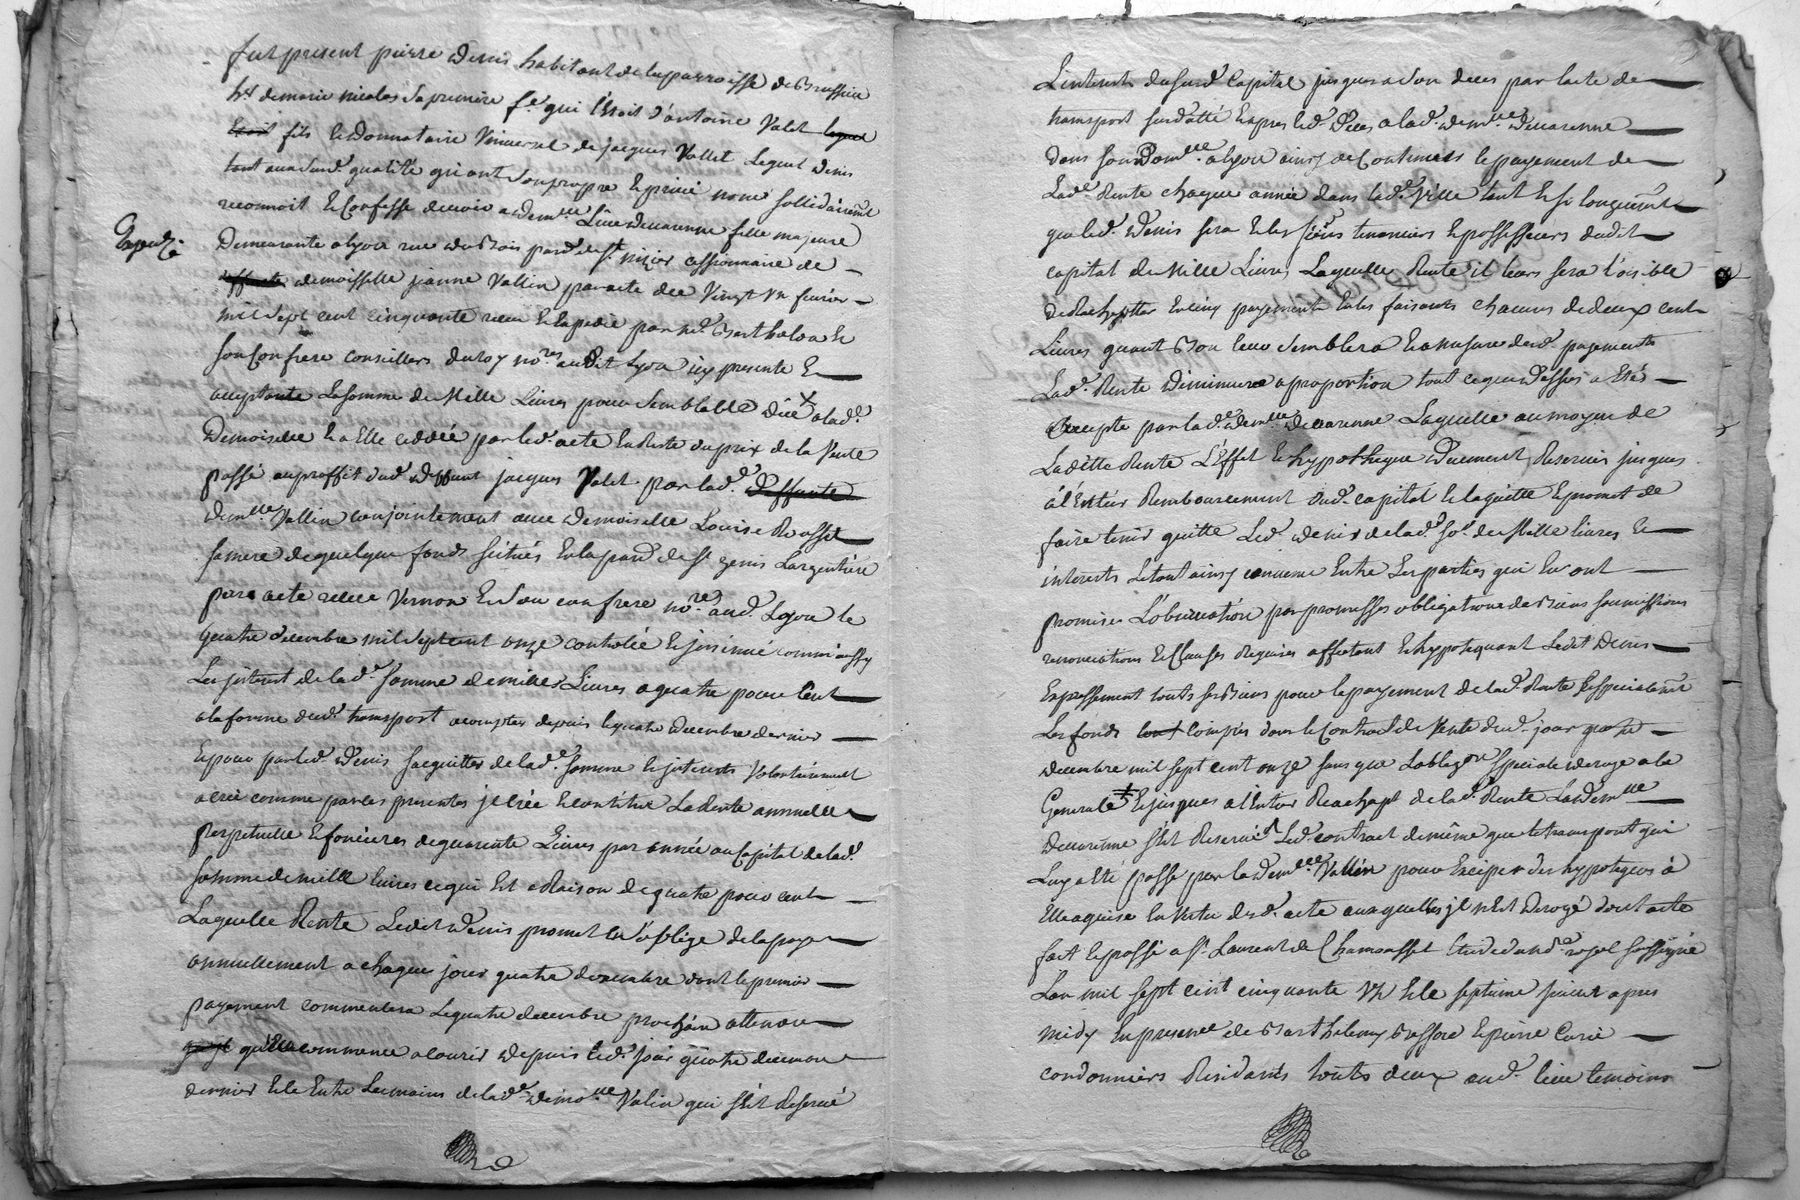 fut present pierre Denis habitant de la parroisse de Brussieu
hr. de marie nicolas sa premiere f.e qui l'Etoit d'antoine Valet lequel
Etoit fils et donnataire Universel de jacques Vallet Lequel Denis
tant aux susd. qualité qu'en son propre et privé nom sollidairemt
reconnoit et Confesse devoir a dem.lle devarenne fille majeure
Expedié
Demeurante a lyon rue du Bois par.d de St. nizier cessionnaire de
deffunte demoisselle jeanne Vallin par acte du Vingt Un fevrier
mil sept cent cinquante receu et Expedié par me. Berthelon et
son Confrere conseillers du roy no.res audit Lyon icy presente et
acceptante La somme de Mille Livres pour semblable düe a lad.e
Demoiselle et a Elle cedée par led. acte En Reste du prix de la Vente
passé au proffit dud. deffunt jacques Valet par lad.e Deffunte
dem.lle Vallin conjointement avec demoiselle Louise Rosset
sa mere de quelque fonds scitués En la par.d de St genis Largentiere
par acte receu Vernon et son confrere no.re aud. Lyon le
quatre decembre mil sept cent onze controlée et jnsinué comm'aussy
Les jnterest de lad.e somme de mille Livres a quatre pour Cent
a la forme dud. transport a compter depuis le quatre decembre dernier
Et pour par led. Denis sacquitter de lad.e somme et jnterests Volontairement
a créé comme par les presentes jl crée et constitue La Rente annuelle
perpetuelle et fonciere de quarente Livres par année au Capital de lad.
somme de mille livres ce qui Est a Raison de quatre pour cent
Laquelle Rente Ledit Denis promet et s'oblige de la payer
annuellement a chaque jour quatre decembre dont le premier
payement commencera Le quatre decembre prochain attendu
qu'Elle a commencé a courir depuis led. jour quatre decembre
dernier Et le Entre Les mains de lad.e demo.lle Valin qui s'est Reservé
L'interest du sud. Capital jusques a son deces par l'acte de
transport susdatté Et apres led. deces a lad. dem.lle Devarenne
dans son Dom.lle a lyon ainsy de Continuer le payement de
Lad.e Rente chaque année dans lad.e Ville tant et si longuement
que led. Denis sera et les siens tenanciers et possesseurs dudit
capital de Mille Livres Laquelle Rente il leurs sera loisible
de Rachepter En cinq payements Egaux faisants chacuns de deux cent
Livres quant Bon leur Semblera Et a mesure desd. payements
Lad. Rente Diminuera a proportion tout ce que dessus a Etés
accepté par lad.e dem.lle devarenne Laquelle au moyen de
Ladite Rente L'Effet et hypotheque d'icement Reservés jusques
á l'Entier Remboursement dud. capital Et laquitte et promet de
faire tenir quitte Led. denis de lad.e so.e de Mille livres et
interests Le tout ainsy convenu Entre Les parties qui En ont
promis L'observation par promesses obligations de Biens soumissions
renonciations et Clauses Requises affectant et hypotequant Ledit Denis
Expressement touts ses Biens pour le payement de lad. Rente Et specialemt
Les fonds tout compris dans le Contrat de Vente dud. jour quatre
decembre mil sept cent onze sans que Loblig.on speciale deroge a la
Generale Et jusques a l'Entier Reachapt de lad. Rente Lad. dem.lle
Devarenne s'est Reservé Led. contract de même que le transport qui
Luy a Eté passé par la dem.lle Vallin pour Exciper des hypoteques á
Elle aquise En Vertu desd. acte auxquelles jl n'Est Derogé dont acte
fait et passé a St. Laurent de Chamousset Etude du nd.e royal soussigné
L'an mil sept cent cinquante Un Et le septieme fevrier apres
midy En presence de Barthelemy Basson et pierre Curie
cordonniers Residants touts deux aud. lieu temoins